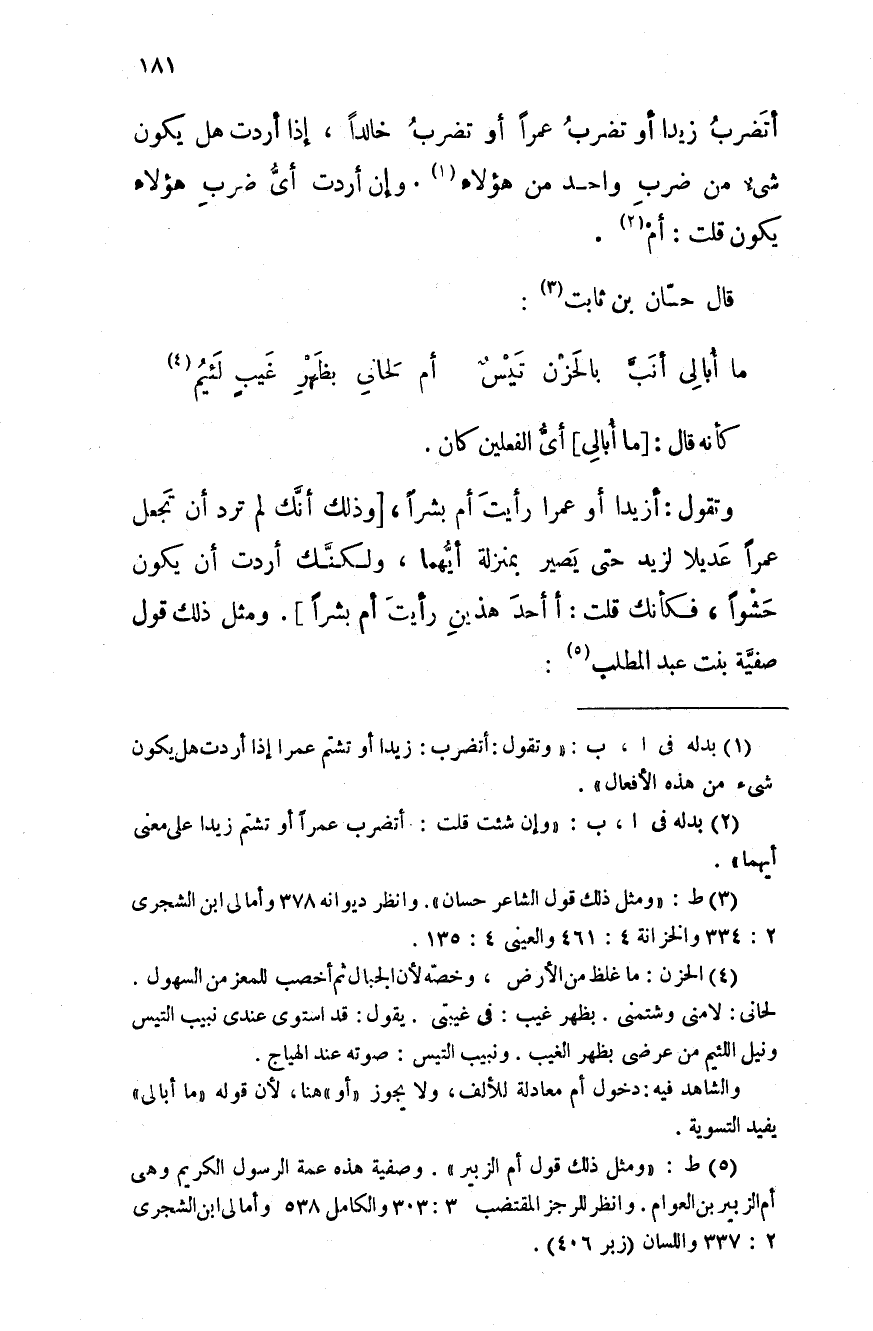 ١٨١
أتَضربُ زيدا أو تضربُ عمراً أو تضربُ خالداً ، إذا أردت هل يكون
شىء من ضربِ واحد من هؤلاء(١) . وإن أردت أىُّ ضربِ هؤلاء
يكون قلت : أمْ(٢) .
قال حسّان بن ثابت(٣) :
ما أُبالِى أنَبَّ بالحَزْن تَيْسٌ أم لحَانى بظَهْرِ غَيبٍ لَئيمُ(٤)
كأنه قال : [ما أُبالِى] أىُّ الفعلين كان .
وتقول : أزيدا أو عمرا رأيتَ أم بشراً ، [وذلك أنَّك لم ترد أن تَجعل
عمراً عَديلا لزيد حتى يَصير بمنزلة أيُّهما ، ولكنَّك أردت أن يكون
حَشْواً ، فكأنك قلت : أ أحدَ هذينِ رأيتَ أم بشراً ] . ومثل ذلك قول
صفيَّة بنت عبد المطلب(٥) :
(١) بدله فى ا ، ب : « وتقول : أتضرب : زيدا أو تشتم عمرا إذا أردت هل يكون
شىء من هذه الأفعال» .
(٢) بدله فى ا ، ب : «وإن شئت قلت : أتضرب عمراً أو تشتم زيدا على معنى
أيهما» .
(٣) ط : «ومثل ذلك قول الشاعر حسان». وانظر ديوانه ٣٧٨ وأمالى ابن الشجرى
٢ : ٣٣٤ والخزانة ٤ : ٤٦١ والعينى ٤ : ١٣٥ .
(٤) الحزن : ما غلظ من الأرض ، وخصّه لأن الجبال ثم أخصب للمعز من السهول .
لحانى : لامنى وشتمنى . بظهر غيب : فى غيبتى . يقول : قد استوى عندى نبيب التيس
ونيل اللئيم من عرضى بظهر الغيب . ونبيب التيس : صوته عند الهياج .
والشاهد فيه : دخول أم معادلة للألف ، ولا يجوز «أو» هنا ، لأن قوله «ما أبالى»
يفيد التسوية .
(٥) ط : «ومثل ذلك قول أم الزبير» . وصفية هذه عمة الرسول الكريم وهى
أم الزبير بن العوام . وانظر للرجز المقتضب ٣ : ٣٠٣ والكامل ٥٣٨ وأمالى ابن الشجرى
٢ : ٣٣٧ واللسان (زبر ٤٠٦) .